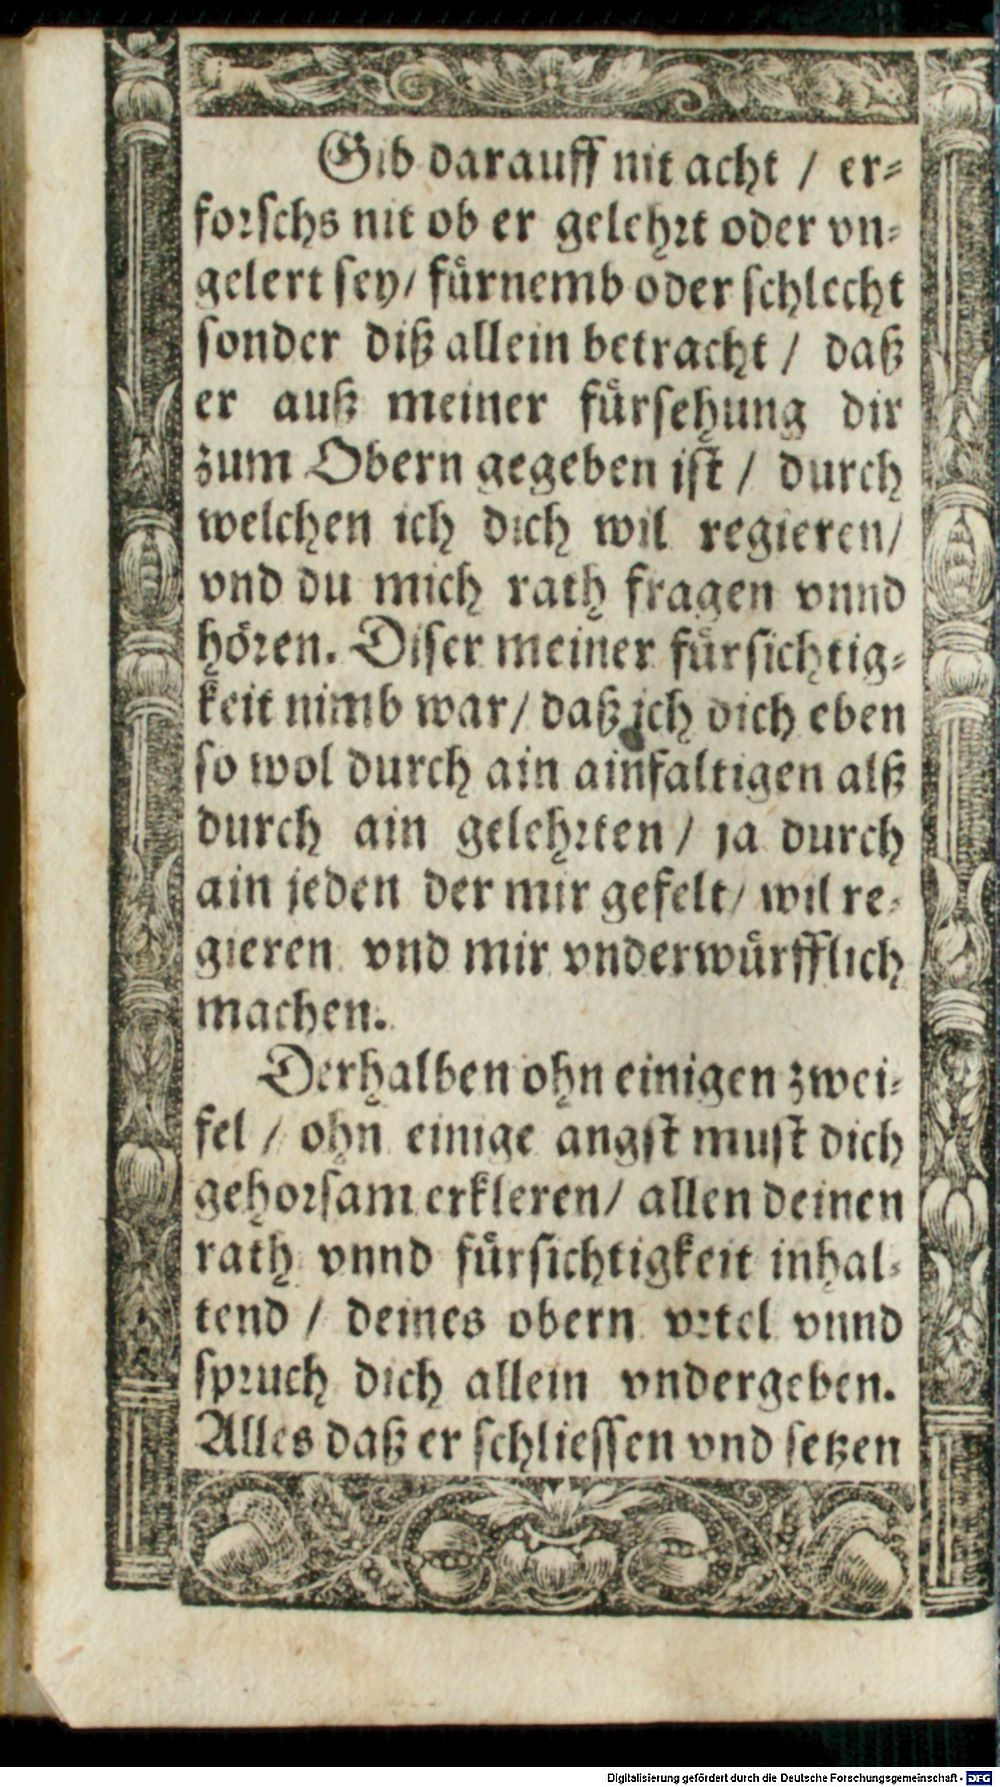 Gib darauff nit acht / er⸗
forschs nit ob er gelehrt oder vn⸗
gelert sey/ fürnemb oder schlecht
sonder diß allein betracht / daß
er auß meiner fürsehung dir
zum Obern gegeben ist / durch
welchen ich dich wil regieren/
vnd du mich rath fragen vnnd
hören. Diser meiner fürsichtig⸗
keit nimb war/ daß ich dich eben
so wol durch ain ainfaltigen alß
durch ain gelehrten / ja durch
ain jeden der mir gefelt/ wil re⸗
gieren vnd mir vnderwürfflich
machen.
Derhalben ohn einigen zwei⸗
fel / ohn einige angst must dich
gehorsam erkleren/ allen deinen
rath vnnd fürsichtigkeit inhal⸗
tend / deines obern vrtel vnnd
spruch dich allein vndergeben.
Alles daß er schliessen vnd setzen
Digitalisierung gefördert durch die Deutsche Forschungsgemeinschaft - DFG